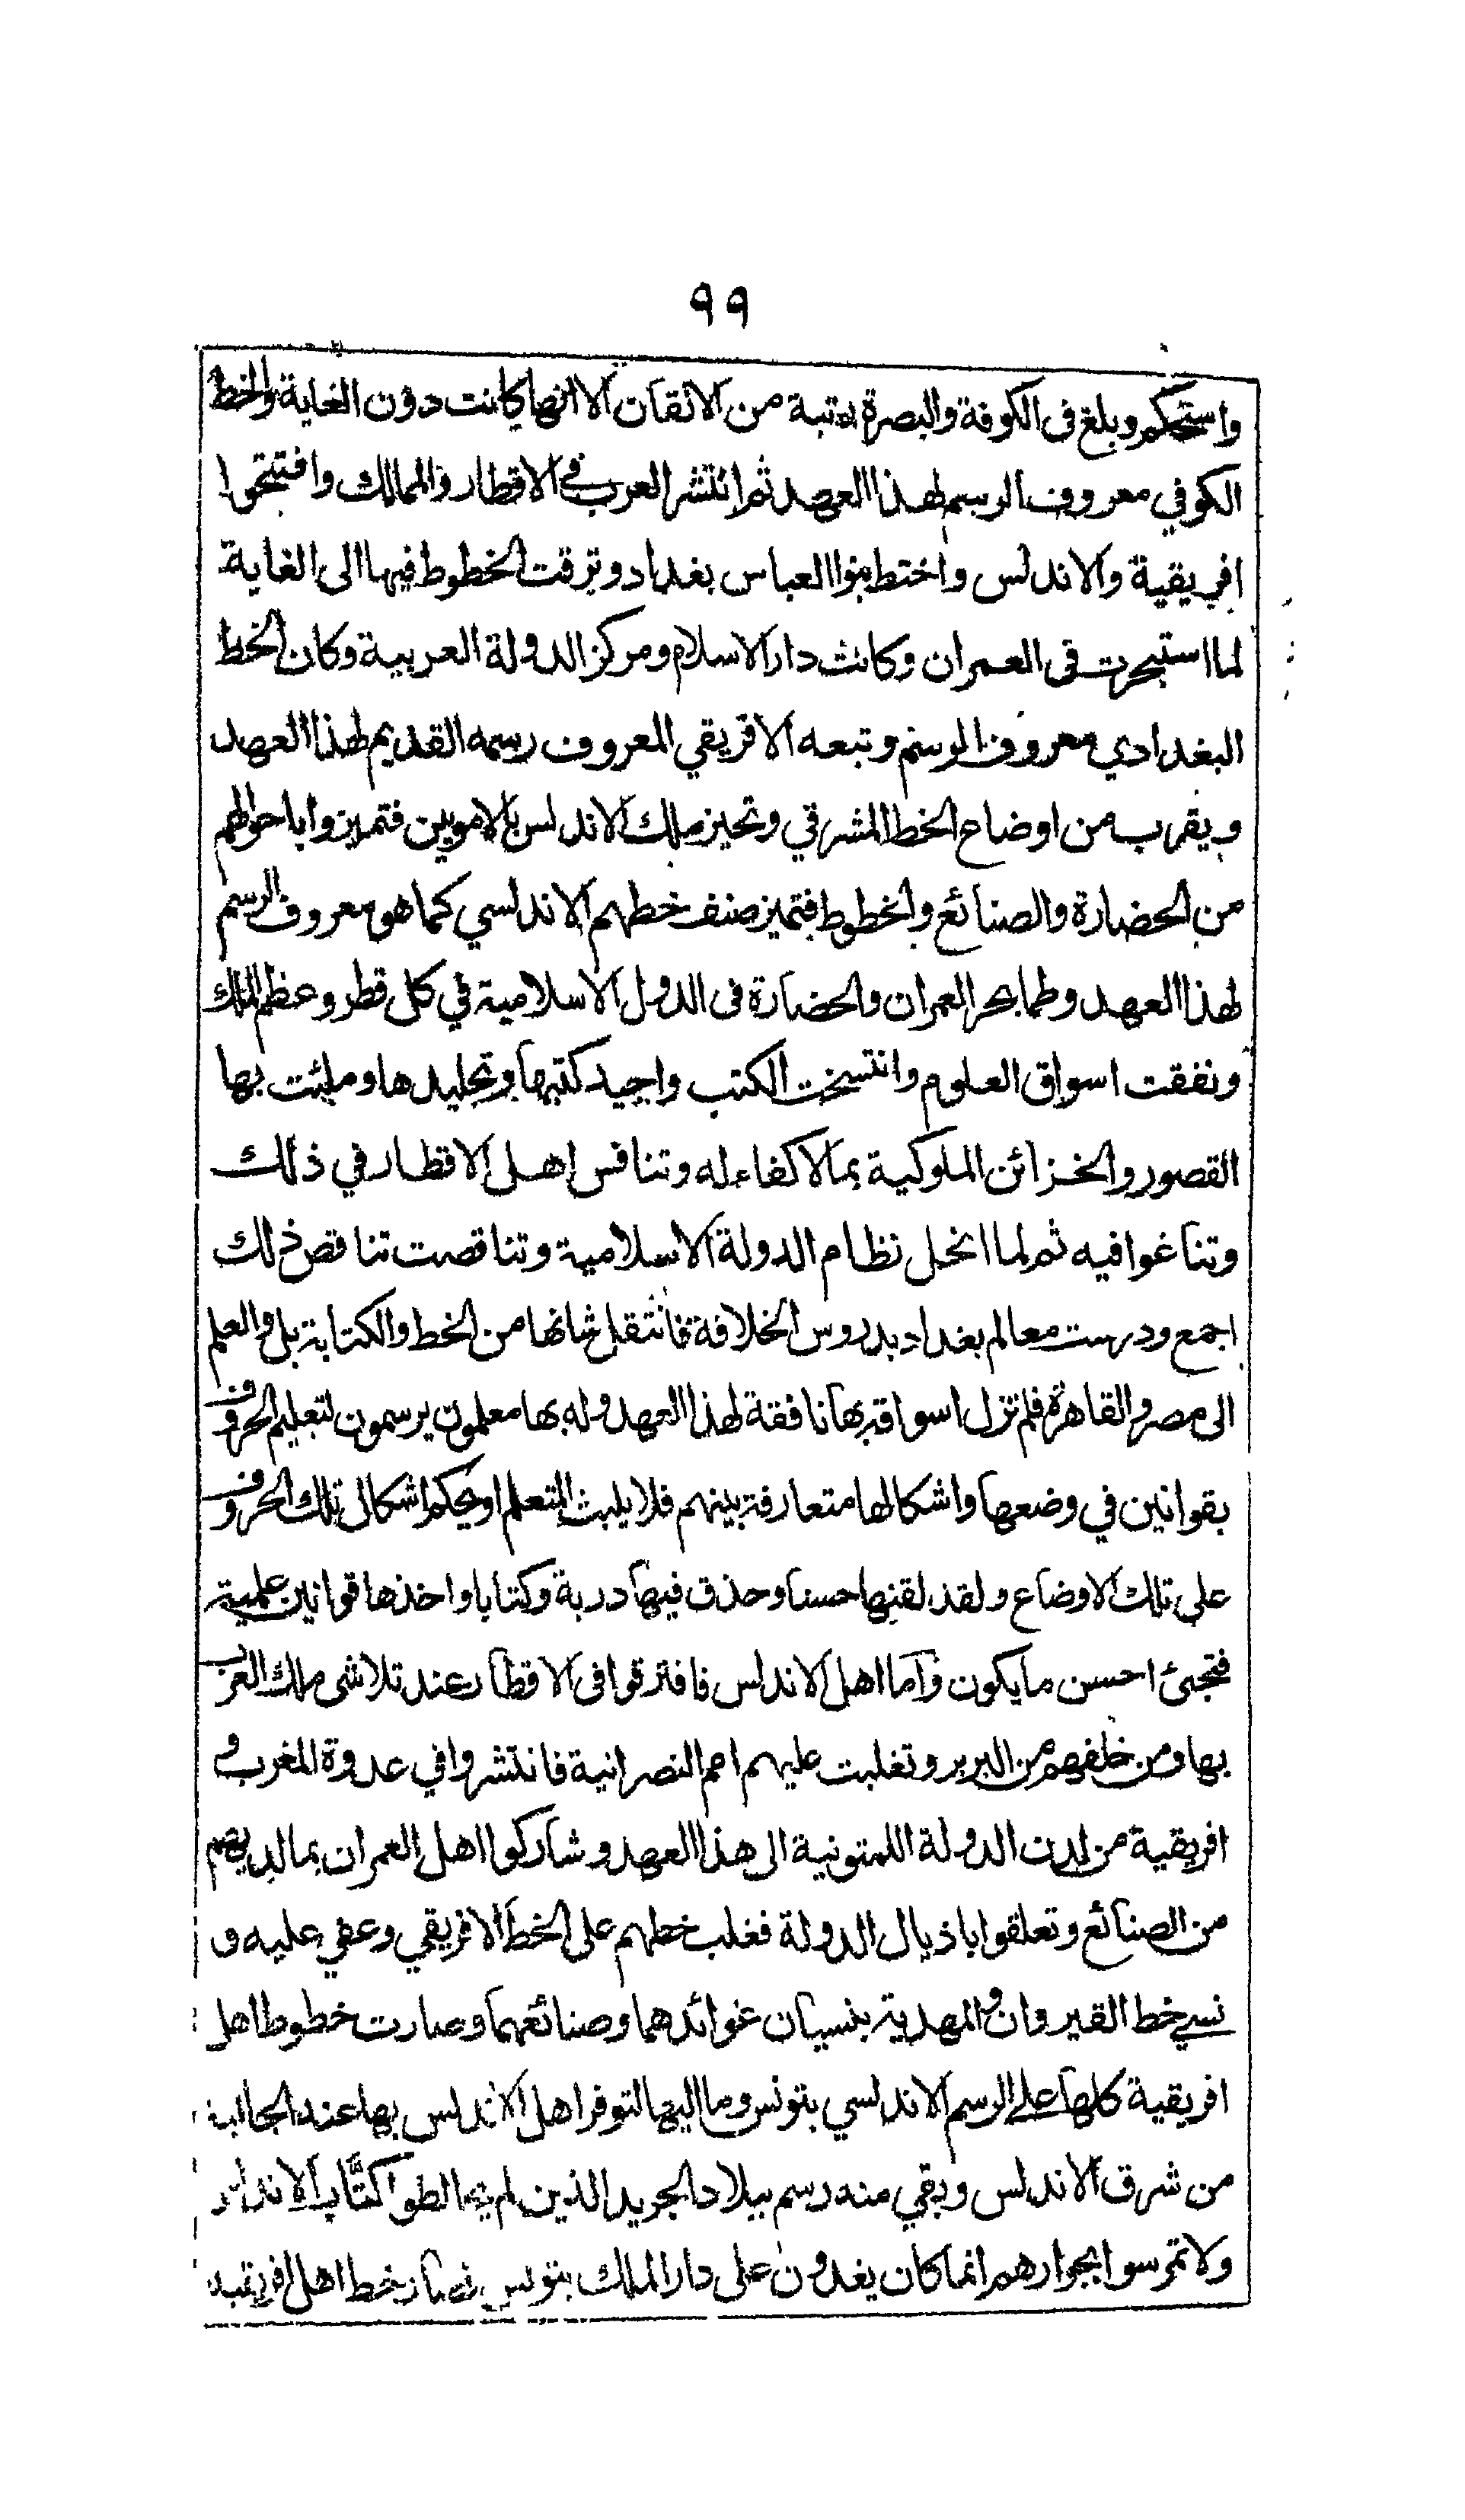 ٩٩
واستحكم وبلغ فى الكوفة والبصرة رتبة من الاتقان الا انها كانت دون الغاية والخط
الكوفي معروف الرسم لهذا العهد ثم انتشر العرب في الاقطار والممالك وافتتحوا
افريقية والاندلس واختط بنوا العباس بغداد وترقت الخطوط فيها الى الغاية
لما استبحرت فى العمران وكانت دار الاسلام ومركز الدولة العربية وكان الخط
البغدادي معروف الرسم وتبعه الافريقي المعروف رسمه القديم لهذا العهد
ويقرب من اوضاع الخط المشرقي وتحيز ملك الاندلس بالامويين فتميزوا باحوالهم
من الحضارة والصنائع والخطوط فتميز صنف خطهم الاندلسي كما هو معروف الرسم
لهذا العهد وطما بحر العمران والحضارة فى الدول الاسلامية في كل قطر وعظم الملك
ونفقت اسواق العلوم وانتسخت الكتب واجيد كتبها وتجليدها وملئت بها
القصور والخزائن الملوكية بما لا كفاء له وتنافس اهل الاقطار في ذلك
وتناغوا فيه ثم لما انحل نظام الدولة الاسلامية وتناقصت تناقص ذلك
اجمع ودرست معالم بغداد بدروس الخلافة فانتقل شانها من الخط والكتابة بل والعلم
الى مصر والقاهرة فلم تزل اسواقه بها نافقة لهذا العهد وله بها معلمون يرسمون لتعليم الحروف
بقوانين في وضعها واشكالها متعارفة بينهم فلا يلبث المتعلم او يحكم اشكال تلك الحروف
على تلك الاوضاع ولقد لقنها حسنا وحذق فيها دربة وكتابا واخذها قوانين علمية
فتجئ احسن ما يكون واما اهل الاندلس فافترقوا فى الاقطار عند تلاشى ملك العرب
بها ومن خلفهم من البربر وتغلبت عليهم امم النصرانية فانتشروا في عدوة المغرب و
افريقية من لدن الدولة اللمتونية الى هذا العهد وشاركوا اهل العمران بما لديهم
من الصنائع وتعلقوا باذيال الدولة فغلب خطهم على الخط الافريقي وعفي عليه و
نسي خط القيروان والمهدية بنسيان عوائدهما وصنائعهما وصارت خطوط اهل
افريقية كلها على الرسم الاندلسي بتونس وما اليها لتوفر اهل الاندلس بها عند الجالية
من شرق الاندلس وبقي منه رسم ببلاد الجريد الذين لم يخالطوا كتَّاب الاندلس
ولا تمرسوا بجوارهم انما كان يغدون على دار الملك بتونس فصار خط اهل افريقية